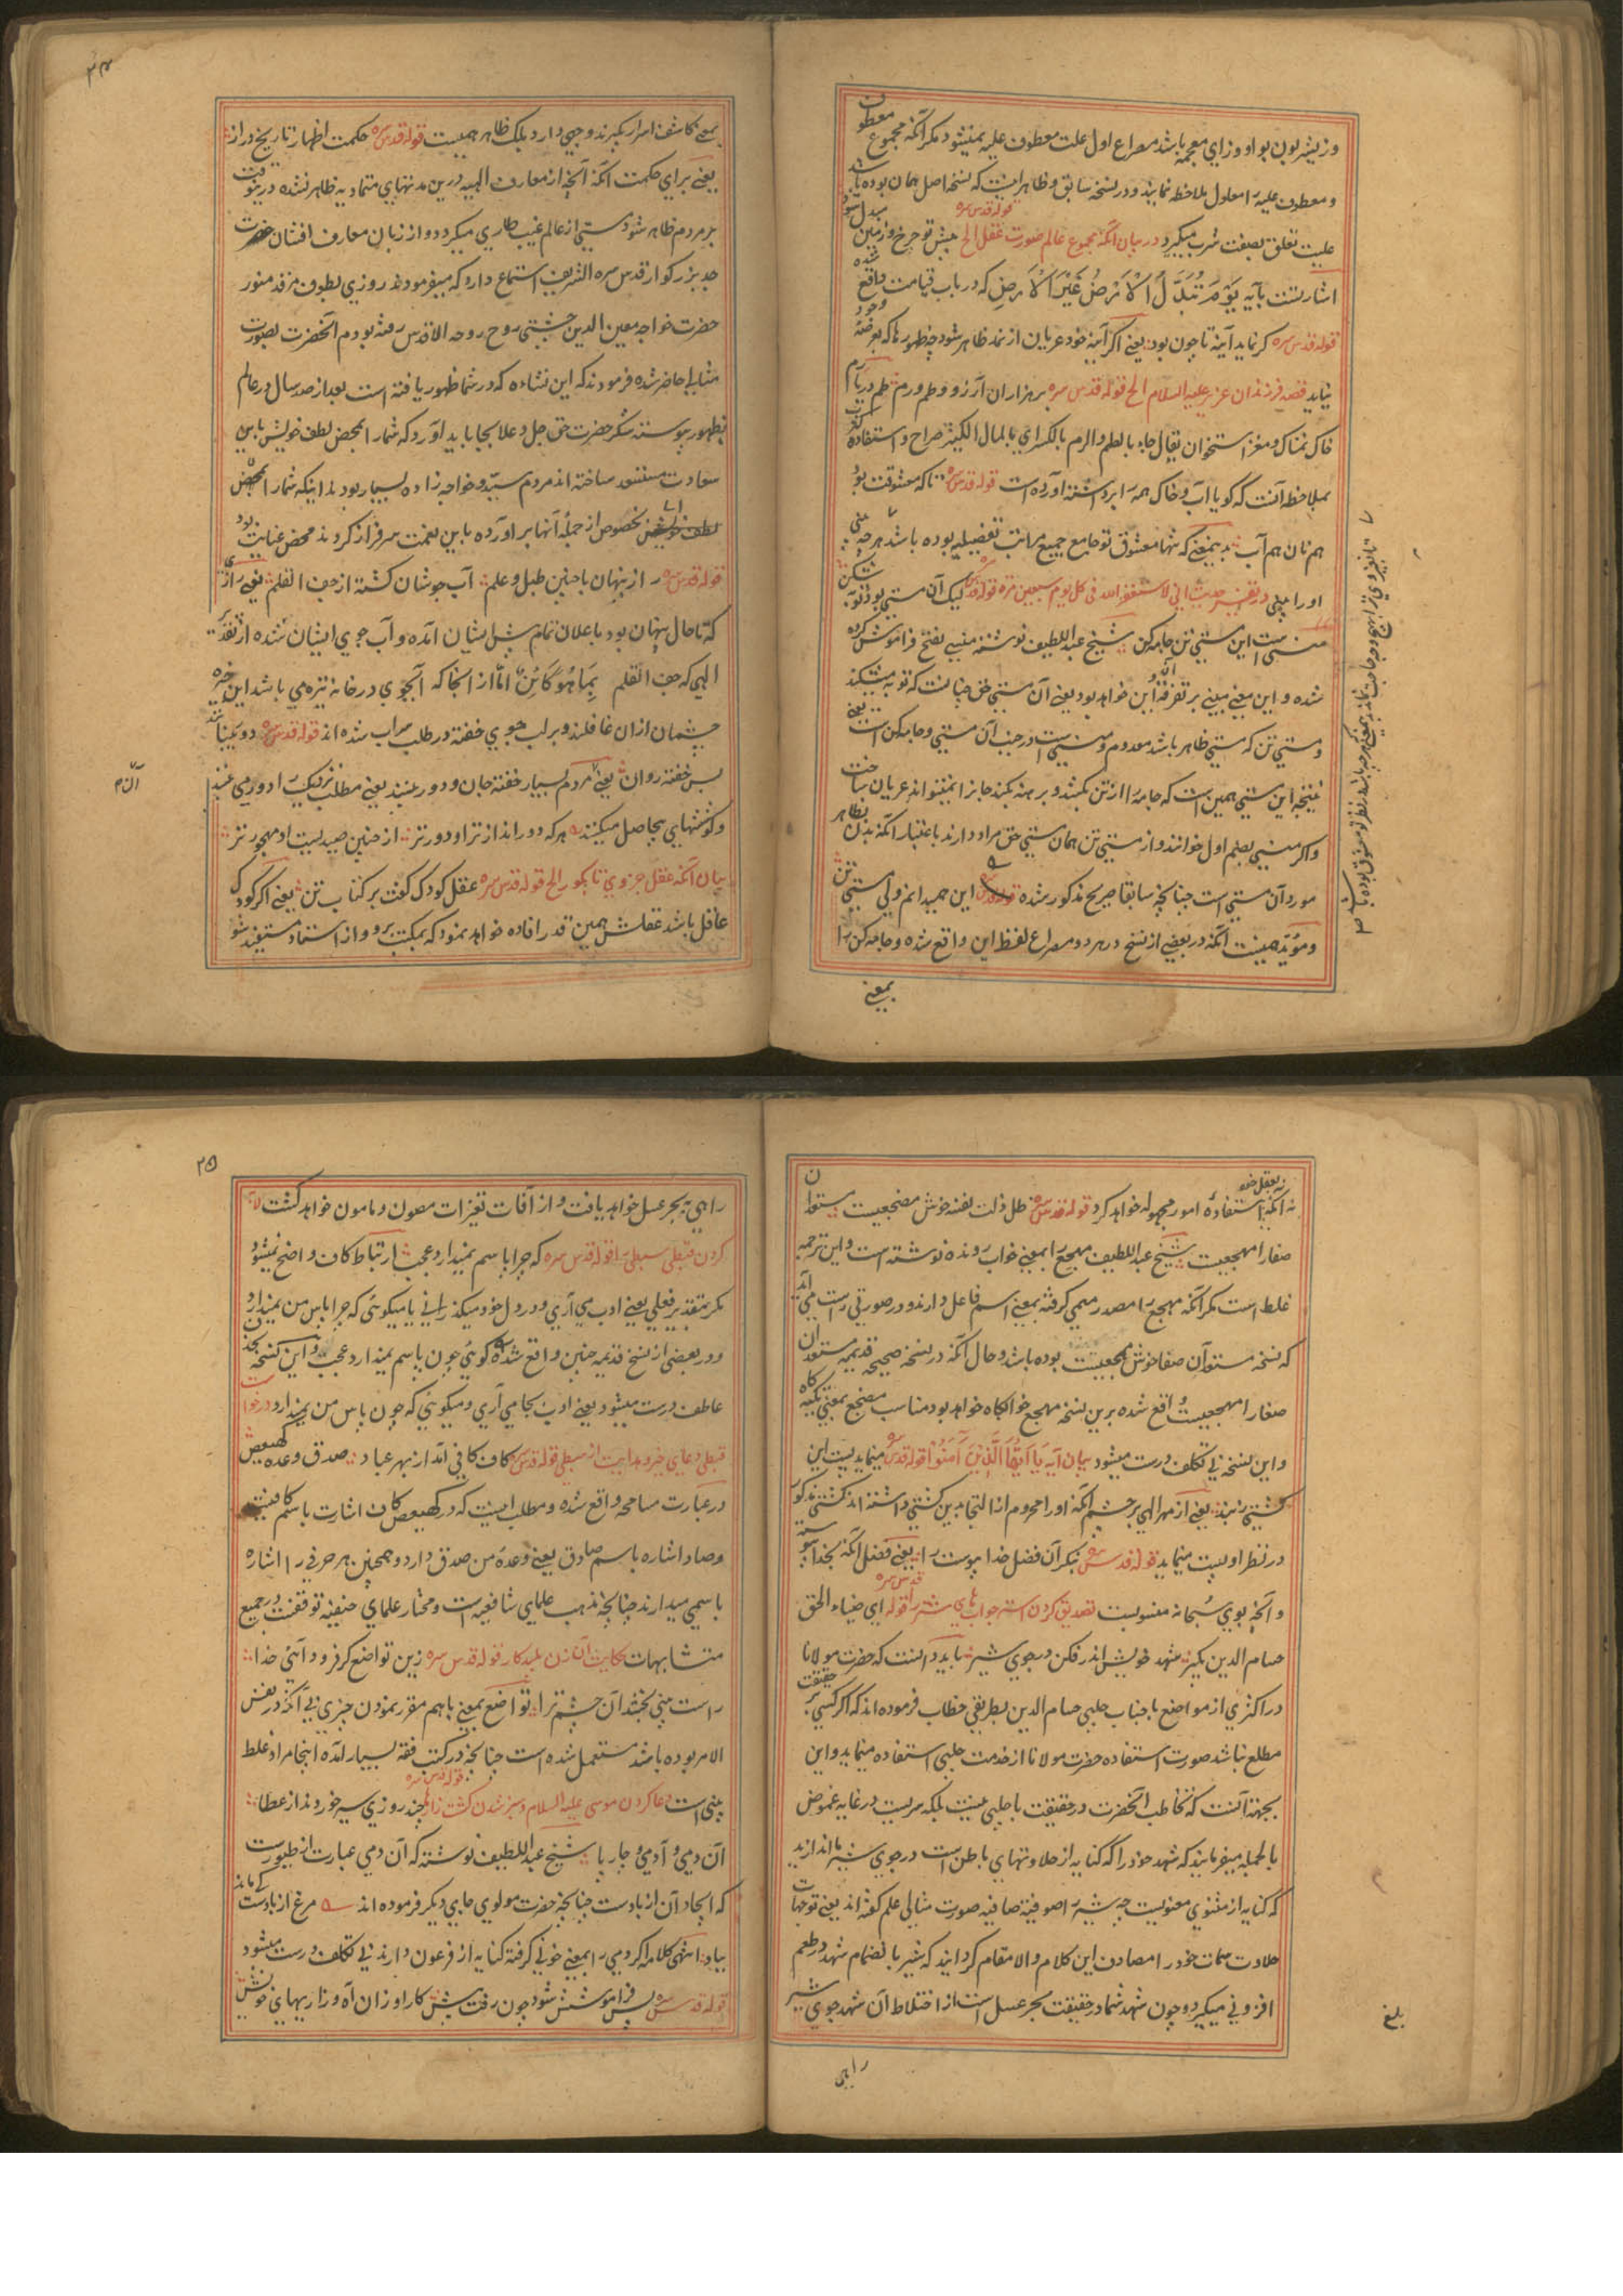 وزیشربون بواو وزای معجمه باشد مصراع اول علت معطوف علیه نمیشود مکر آنکه مجموع معطوف
و معطوف علیه را معلول ملاحظه نمایند و در نسخه سابق و ظاهر اینست که نسخه اصل همان بوده باشد
علیت تعلق بصفت شرب میکیرد در بیان آنکه مجموع عالم صورت عقل الخ قوله قدس سره پیش تو چرخ و زمین مبدل شود
اشارتست بآیه یَوْمَ تُبَدَّلُ الْاَرْضُ غَیْرَ الْاَرْضِ که در باب قیامت واقع شده
قوله قدس سره کر نماید آینه تا چون بود یعنی اکر آینه خود عریان از نمد ظاهر شود چه ظهورها که بعرصه وجود
نیاید قصه فرزندان عزیر علیه السلام الخ قوله قدس سره بر هزاران آرزو و طم و رم طم دریا رم
خاک نمناک و مغز استخوان یقال جاء بالطم والرم بالکسر ای بالمال الکثیر صراح و استفاده کثرت
بملاحظه آنست که کویا آب و خاک همه را برداشته آورده است قوله قدس سره تا که معشوقت بود
هم نان هم آب بدینمعنی که تنها معشوق تو جامع جمیع مراتب تفصیلیه بوده باشد هر چه
او را در تفسیر حدیث انی لاستغفر الله فی کل یوم سبعین مرة قوله قدس سره لیک آن مستی بود توبه شکن
منسی است این مستی تن جامه کن شیخ عبداللطیف نوشته منسی بفتح فراموش کرده
شده و این معنی مبنی بر تفرقه این و آن خواهد بود یعنی آن مستی حق چنانست که توبه میشکند
و مستی تن که مستی ظاهر باشد معدوم و منسی است در جنب آن مستی و جامه کن است یعنی
نتیجه این مستی همین است که جامه را از تن بکشد و برهنه بکند جانرا نمیتواند عریان ساخت
و اکر منسی بضم اول خوانند و از مستی تن همان مستی حق مراد دارند باعتبار آنکه بدن بظاهر
مورد آن مستی است چنانچه سابقا صریح مذکور شده این همیدانم ولی مستی تن
و مؤید همینست آنکه در بعضی از نسخ در هر دو مصراع لفظ این واقع شده و جامه کن را
بمعنی
۲۴
بمعنی کاشف اسرار بکیرند وجهی دارد بلکه ظاهر همینست قوله قدس سره حکمت اظهار تاریخ دراز
یعنی برای حکمت آنکه آنچه از معارف الهیه درین مدتهای متمادیه ظاهر نشده درینوقت
بر مردم ظاهر شود مستی از عالم غیب طاری میکردد و از زبان معارف افشان حضرت
جد بزرکوار قدس سره الشریف استماع دارد که میفرمودند روزی بطوف مرقد منور
حضرت خواجه معین الدین چشتی روح روحه الاقدس رفته بودم آنحضرت بصورت
مثالی حاضر شده فرمودند که این نشاءه که در شما ظهور یافته است بعد از صد سال در عالم
بظهور پیوسته شکر حضرت حق جل و علا بجا باید آورد که شما را بمحض لطف خویش باین
سعادت مستسعد ساخته اند مردم سید و خواجه زاده بسیار بودند اینکه شما را بمحض
لطف خویش بخصوص از جمله آنها بر آورده باین نعمت سرفراز کردند محض عنایت بود
قوله قدس سره راز پنهان با چنین طبل و علم آب جوشان کشته از جف القلم یعنی رازی
که تا حال پنهان بود باعلان تمام پیش ایشان آمده و آب جوی ایشان شده از تقدیر
الهی که جف القلم بِمَا هُوَ کَائِنٌ امّا از آنجا که آبجوی در خانه تیره می باشد این خیره
چشمان ازان غافلند و بر لب جوی خفته در طلب سراب شده اند قوله قدس سره دور می بینند
بس خفته روان یعنی مردم بسیار خفته جان و دور بینند یعنی مطلب نزدیک را دور می بینند
و کوششهای بیحاصل میکنند هر که دور اندازتر او دورتر از چنین صیدیست او مهجورتر
بیان آنکه عقل جزوی تا بکور الخ قوله قدس سره عقل کودک کفت بر کتاب تن یعنی اکر کودک
عاقل باشد عقلش همین قدر افاده خواهد نمود که بمکتب برو و از استاد مستفید شو
نه آنکه استفاده امور مجهوله خواهد کرد قوله قدس سره ظل ذلت نفسه خوش مضجعیست مستعدان
صفا را مهجعیست شیخ عبداللطیف مهجع را بمعنی خواب رونده نوشته است و این ترجمه
غلط است مکر آنکه مهجع را مصدر میمی کرفته بمعنی اسم فاعل دارند و در صورتی راست می آید
که نسخه مستعدان صفا خوش مهجعیست بوده باشد و حال آنکه در نسخه صحیحه قدیمه مستعدان
صفا را مهجعیست واقع شده برین نسخه مهجع خوابکاه خواهد بود مناسب مضجع بمعنی تکیه کاه
و این نسخه بی تکلف درست میشود بیان آیه یَا اَیُّهَا الَّذِیْنَ آمَنُوْا قوله قدس سره مینماید پست این
کشتی ز بند یعنی از مهر الهی بر چشم آنکه او را محروم از التجا بدین کشتی داشته اند کشتی مذکور
در نظر او پست مینماید قوله قدس سره بنکر آن فضل خدا پیوست را یعنی فضل آنکه بخدا پیوسته
و آنچه بوی سُبحانه منسوبست تصدیق کردن استر جوابهای شتر را قوله قدس سره ای ضیاء الحق
حسام الدین بکیر شهد خویش اندر فکن در جوی شیر باید دانست که حضرت مولانا
در اکثری از مواضع با جناب چلبی حسام الدین بطریقی خطاب فرموده اند که اکر کسی بر حقیقت
مطلع نباشد صورت استفاده حضرت مولانا از خدمت چلبی استفاده مینماید و این
بجهة آنست که تخاطب آنحضرت در حقیقت با چلبی نیست بلکه سریست در غایه غموض
بالجمله میفرمایند که شهد خود را که کنایه از حلاوتهای باطن است در جوی شیر ما اندازید
که کنایه از مثنوی معنویست چه شیر را صوفیه صافیه صورت مثالی علم کفته اند یعنی توجهات
حلاوت سمات خود را مصادف این کلام والا مقام کردانید که شیر بانضمام شهد در طعم
افزونی میکیرد و چون شهد شما در حقیقت بحر عسل است از اختلاط آن شهد جوی شیر
راهی
بلغ
۲۵
راهی ببحر عسل خواهد یافت و از آفات تغیرات مصون و مامون خواهد کشت لابه
کردن قبطی سبطی را قوله قدس سره که چرا پاسم نمیدارد عجب ارتباط کاف واضح نمیشود
مکر بتقدیر فعلی یعنی ادب می آری و در دل خود میکذرانی یا میکوئی که چرا پاس من نمیدارد
و در بعضی از نسخ قدیمه چنین واقع شده کوئی چون پاسم نمیدارد عجب و این نسخه بحذف
عاطف درست میشود یعنی ادب بجا می آری و میکوئی که چون پاس من نمیدارد درخواست
قبطی دعای خیر و هدایت از سبطی قوله قدس سره کاف کافی آمد از بهر عباد صدق وعده کهیعص
در عبارت مسامحه واقع شده و مطلب اینست که در کهیعص کاف اشارت باسم کافیست
و صاد اشاره باسم صادق یعنی وعده من صدق دارد و همچنین هر حرفی را اشاره
باسمی میدارند چنانچه مذهب علمای شافعیه است و مختار علمای حنفیه توقفست در جمیع
متشابهات حکایت آن زن پلید کار قوله قدس سره زین تواضع کر فرود آئی خدا
راست بینی بخشد آن چشم ترا تواضع بمعنی باهم مقرر نمودن چیزی بی آنکه در نفس
الامر بوده باشد مستعمل شده است چنانچه در کتب فقه بسیار آمده اینجا مراد غلط
بینی است دعا کردن موسی علیه السلام و سبز شدن کشت زارها قوله قدس سره چند روزی سیر خوردند از عطا
آن دمی و آدمی و چار پا شیخ عبداللطیف نوشته که آن دمی عبارت از طیورست
که ایجاد آن از بادست چنانچه حضرت مولوی جای دیکر فرموده اند مرغ از بادست کی ماند
بباد انتهی کلامه اکر دمی را بمعنی خونی کرفته کنایه از فرعون دارند بی تکلف درست میشود
قوله قدس سره پس فراموشش شود چون رفت پیش کار او زان آه و زاریهای خویش